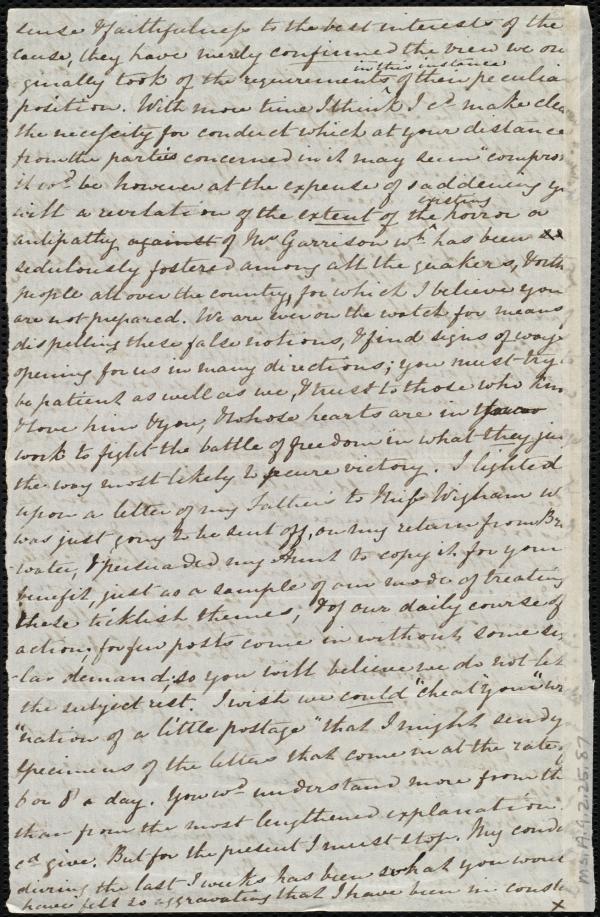 sense & faithfulness to the best interests of the
cause, they have merely confirmed the view we ori
ginally took of the requirements in this instance of their peculiar
position. With more time I think I cd. make clea
the necessity for conduct which at your distance
from the parties concerned in it may seem "compro
it wd. be however at the expense of saddening yo
with a revelation of the extent of the existing horror or
antipathy against of Mr Garrison wh. has been
sedulously fostered among all the quakers, & other
people all over the country, for which I believe you
are not prepared. We are ever on the watch for means
dispelling these false notions, & find signs of ways
opening for us in many directions; you must try t
be patient as well as we, & trust to those who kno
& love him & you, & whose hearts are in
work to fight the battle of freedom in what they ju
the way most likely to secure victory. I lighted
upon a letter of my Father's to Miss Wigham w
was just going to be sent off, on my return from Br
water, & persuaded my Aunt to copy it for your
benefit, just as a sample of our mode of treating
these ticklish themes, & of our daily course of
action; for few posts come in without some si
lar demand; so you will believe we do not let
the subject rest. I wish we could "cheat" your
"nation of a little postage" that I might send y
specimens of the letters that come in at the rate o
6 or 8 a day. You wd. understand more from th
than from the most lengthened explanation
cd. give. But for the present I must stop. My condu
during the last 2 weeks has been what you would
have felt so aggravating that I have been in const
x
Ms. A.9.2.25.87